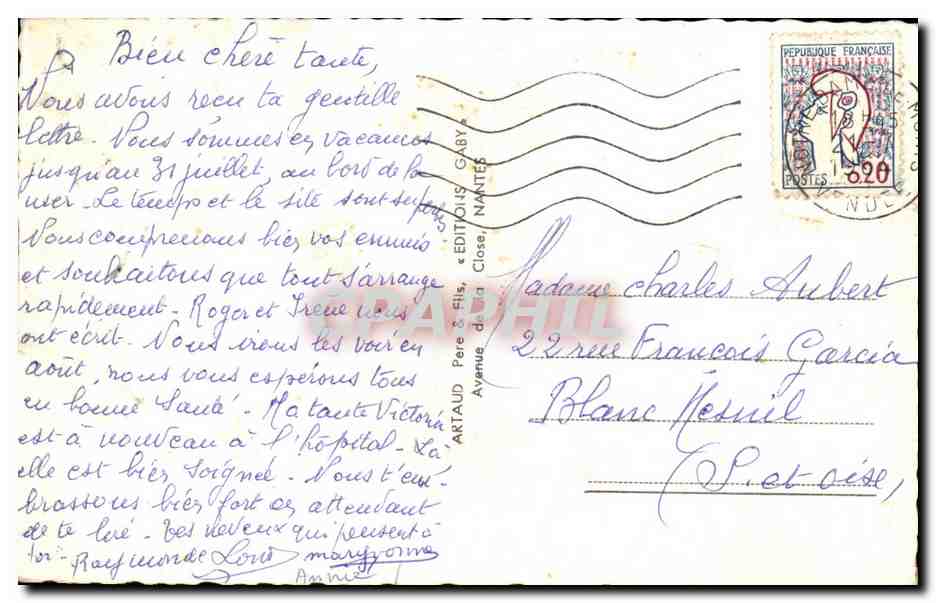 Bien chère tante,
Nous avons reçu ta gentille
lettre. Nous sommes en vacances
jusqu'au 31 juillet, au bord de la
mer. Le temps et le site sont superbes.
Nous comprenons bien vos ennuis
et souhaitons que tout s'arrange
rapidement. Roger et Irène nous
ont écrit. Nous irons les voir en
août, nous vous espérons tous
en bonne santé. Ma tante Victoria
est à nouveau à l'hôpital. Là
elle est bien soignée. Nous t'em-
brassons bien fort en attendant
de te lire. Tes neveux qui pensent à
toi.
Raymonde Louis Maryvonne
Annie
ARTAUD Père & Fils, « EDITIONS GABY »
Avenue de la Close, NANTES
REPUBLIQUE FRANÇAISE
POSTES 0.20
18 H
VENDEE
Madame Charles Aubert
22 rue François Garcia
Blanc Mesnil
(S. et Oise)
CPAPHIL